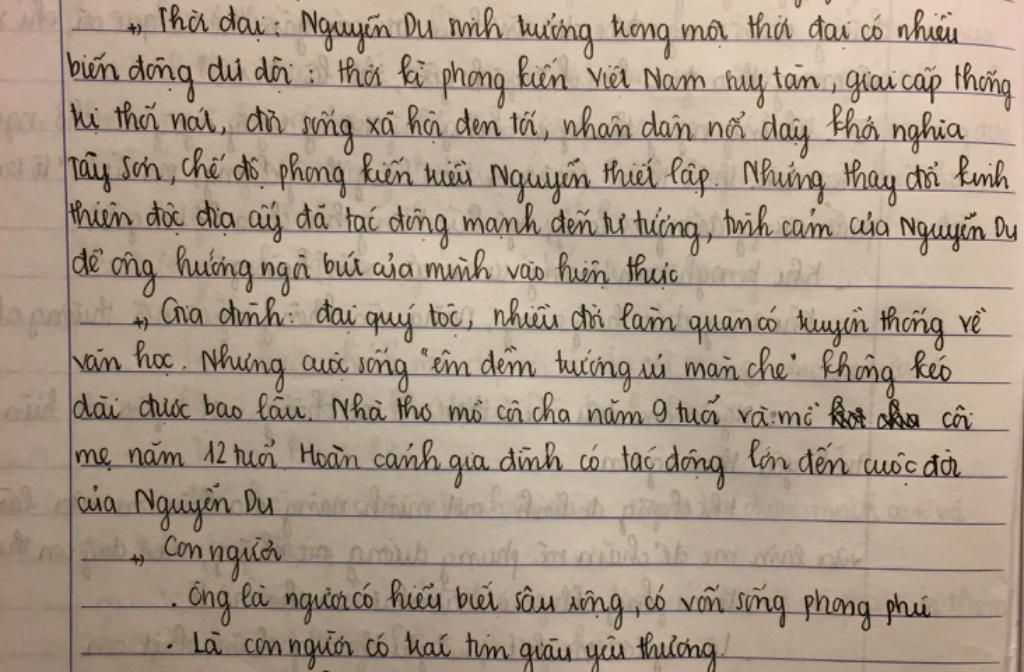 → Thời đại: Nguyễn Du sinh trưởng trong một thời đại có nhiều
biến động dữ dội: thời kì phong kiến Việt Nam suy tàn, giai cấp thống
trị thối nát, đời sống xã hội đen tối, nhân dân nổi dậy khởi nghĩa
Tây Sơn, chế độ phong kiến triều Nguyễn thiết lập. Những thay đổi kinh
thiên động địa ấy đã tác động mạnh đến tư tưởng, tình cảm của Nguyễn Du
để ông hướng ngòi bút của mình vào hiện thực
→ Gia đình: đại quý tộc, nhiều đời làm quan có truyền thống về
văn học. Nhưng cuộc sống "êm đềm trướng rủ màn che" không kéo
dài được bao lâu. Nhà thơ mồ côi cha năm 9 tuổi và mồ côi
mẹ năm 12 tuổi. Hoàn cảnh gia đình có tác động lớn đến cuộc đời
của Nguyễn Du
→ Con người
. Ông là người có hiểu biết sâu rộng, có vốn sống phong phú
. Là con người có trái tim giàu yêu thương.